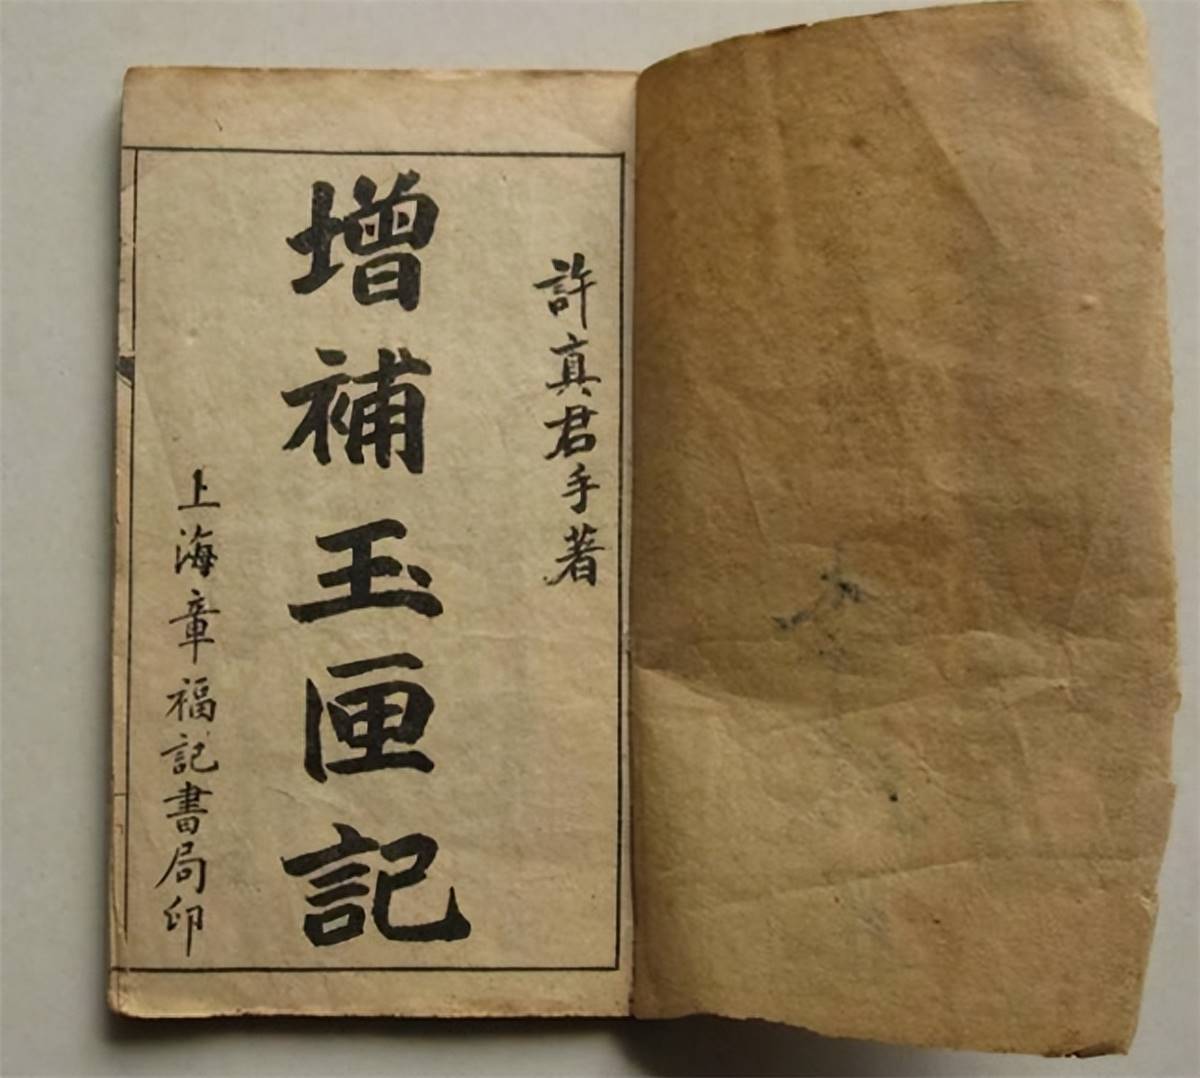 許真君手著
增補玉匣記
上海章福記書局印